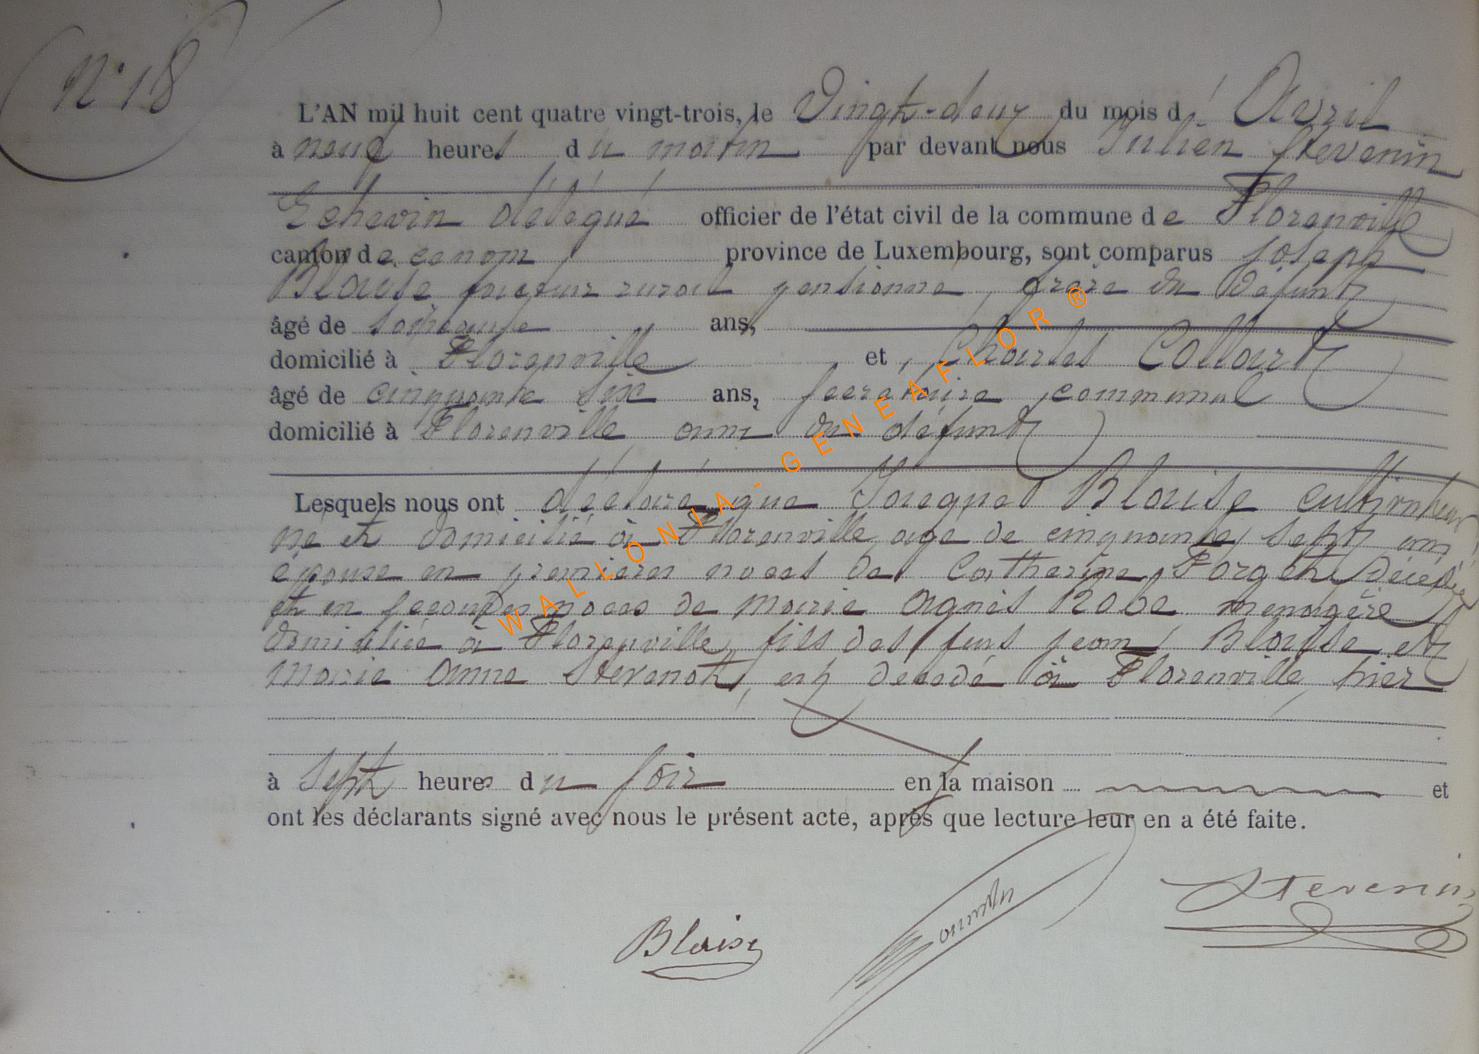 N° 18
L'AN mil huit cent quatre vingt-trois, le Vingt-deux du mois d'Avril
à neuf heures du matin par devant nous Julien Stevenin
Echevin délégué officier de l'état civil de la commune de Florenville
canton de ce nom province de Luxembourg, sont comparus Joseph
Blaise facteur rural pensionné, frère du défunt
âgé de soixante ans,
domicilié à Florenville et Charles Collart
âgé de cinquante six ans, secrétaire communal
domicilié à Florenville ami du défunt
Lesquels nous ont déclaré que Jacques Blaise cultivateur
né et domicilié à Florenville agé de cinquante sept ans
époux en premières noces de Catherine Forget décédée
et en secondes noces de Marie Agnès Robe menagère
domiciliée à Florenville, fils des feus Jean Blaise et
Marie Anne Stevenot, est decedé à Florenville, hier
à sept heures du soir en la maison et
ont les déclarants signé avec nous le présent acte, après que lecture leur en a été faite.
Blaise
Stevenin
WALLONIA - GENEAFLOR ®